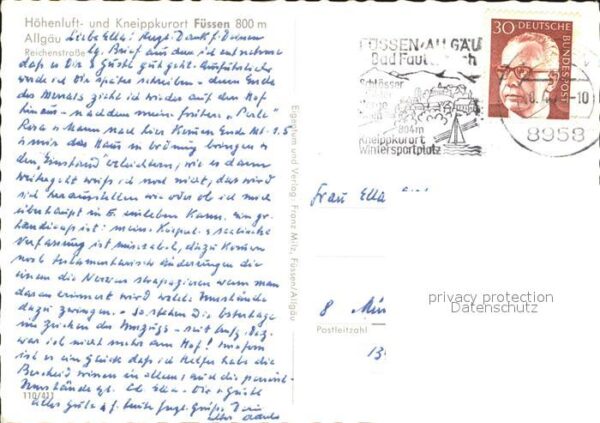 Höhenluft- und Kneippkurort Füssen 800 m
Allgäu
Reichenstraße
Liebe Ella! Hrzl. Dank f. Deinen
lg. Brief aus dem ich entnehme
daß es Dir & Gustl gut geht. Ausführlicher
werde ich Dir später schreiben - denn Ende
des Monats zieht ich wieder auf den Hof
hinaus - nachdem meine frühere "Perle"
Rosa & Mann nach hier kommen Ende
mir das Haus in Ordnung bringen &
den "Einstand" erleichtern, wie es dann
weitergeht weiß ich noch nicht, das wird
sich herausstellen wie oder ob ich mich
überhaupt in einleben kann. Ein gr.
Handicap ist: meine körperl. & seelische
Verfassung ist miserabel, dazu kommen
noch testamentarische Änderungen die
einem die Nerven strapazieren wenn man
daran erinnert wird welche Umstände
dazu zwingen. - So stehen die Ostertage
im Zeichen des Umzugs - seit
war ich nicht mehr am Hof! Insofern
ist es ein Glück daß ich Helfer habe die
Bescheid wissen in allem, auch die
Umstände Lb. Ella - Dir & Gustl
alles Gute & f. heute hrzl. Grüße Dein
110/411
Eigentum und Verlag: Franz Milz, Füssen/Allgäu
FÜSSEN/ALLGÄU
Bad Faulenbach
Schlösser
804m
Kneippkurort
Wintersportplatz
30 DEUTSCHE BUNDESPOST
-10
8958
Frau Ella
8 Mün
Postleitzahl
13
privacy protection
Datenschutz